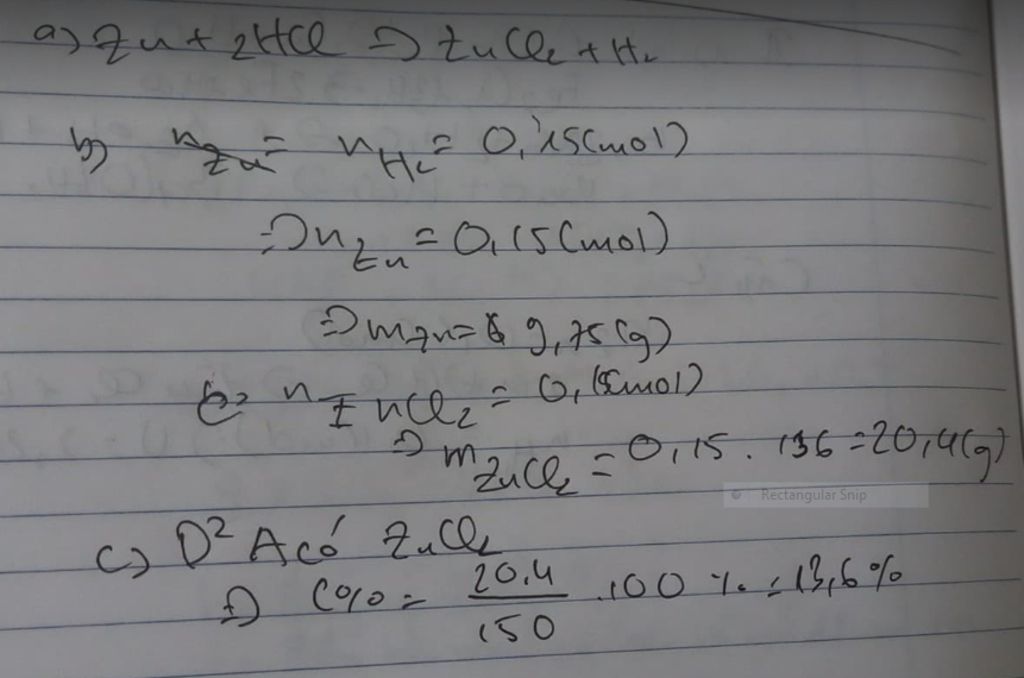 a) Zn + 2HCl => ZnCl2 + H2
b) nZn = nH2 = 0,15(mol)
=> nZn = 0,15(mol)
=> mZn = 9,75(g)
nZnCl2 = 0,15(mol)
=> mZnCl2 = 0,15 . 136 = 20,4(g)
Rectangular Snip
c) D2 A có ZnCl2
=> C% = 20,4/150 .100% = 13,6%